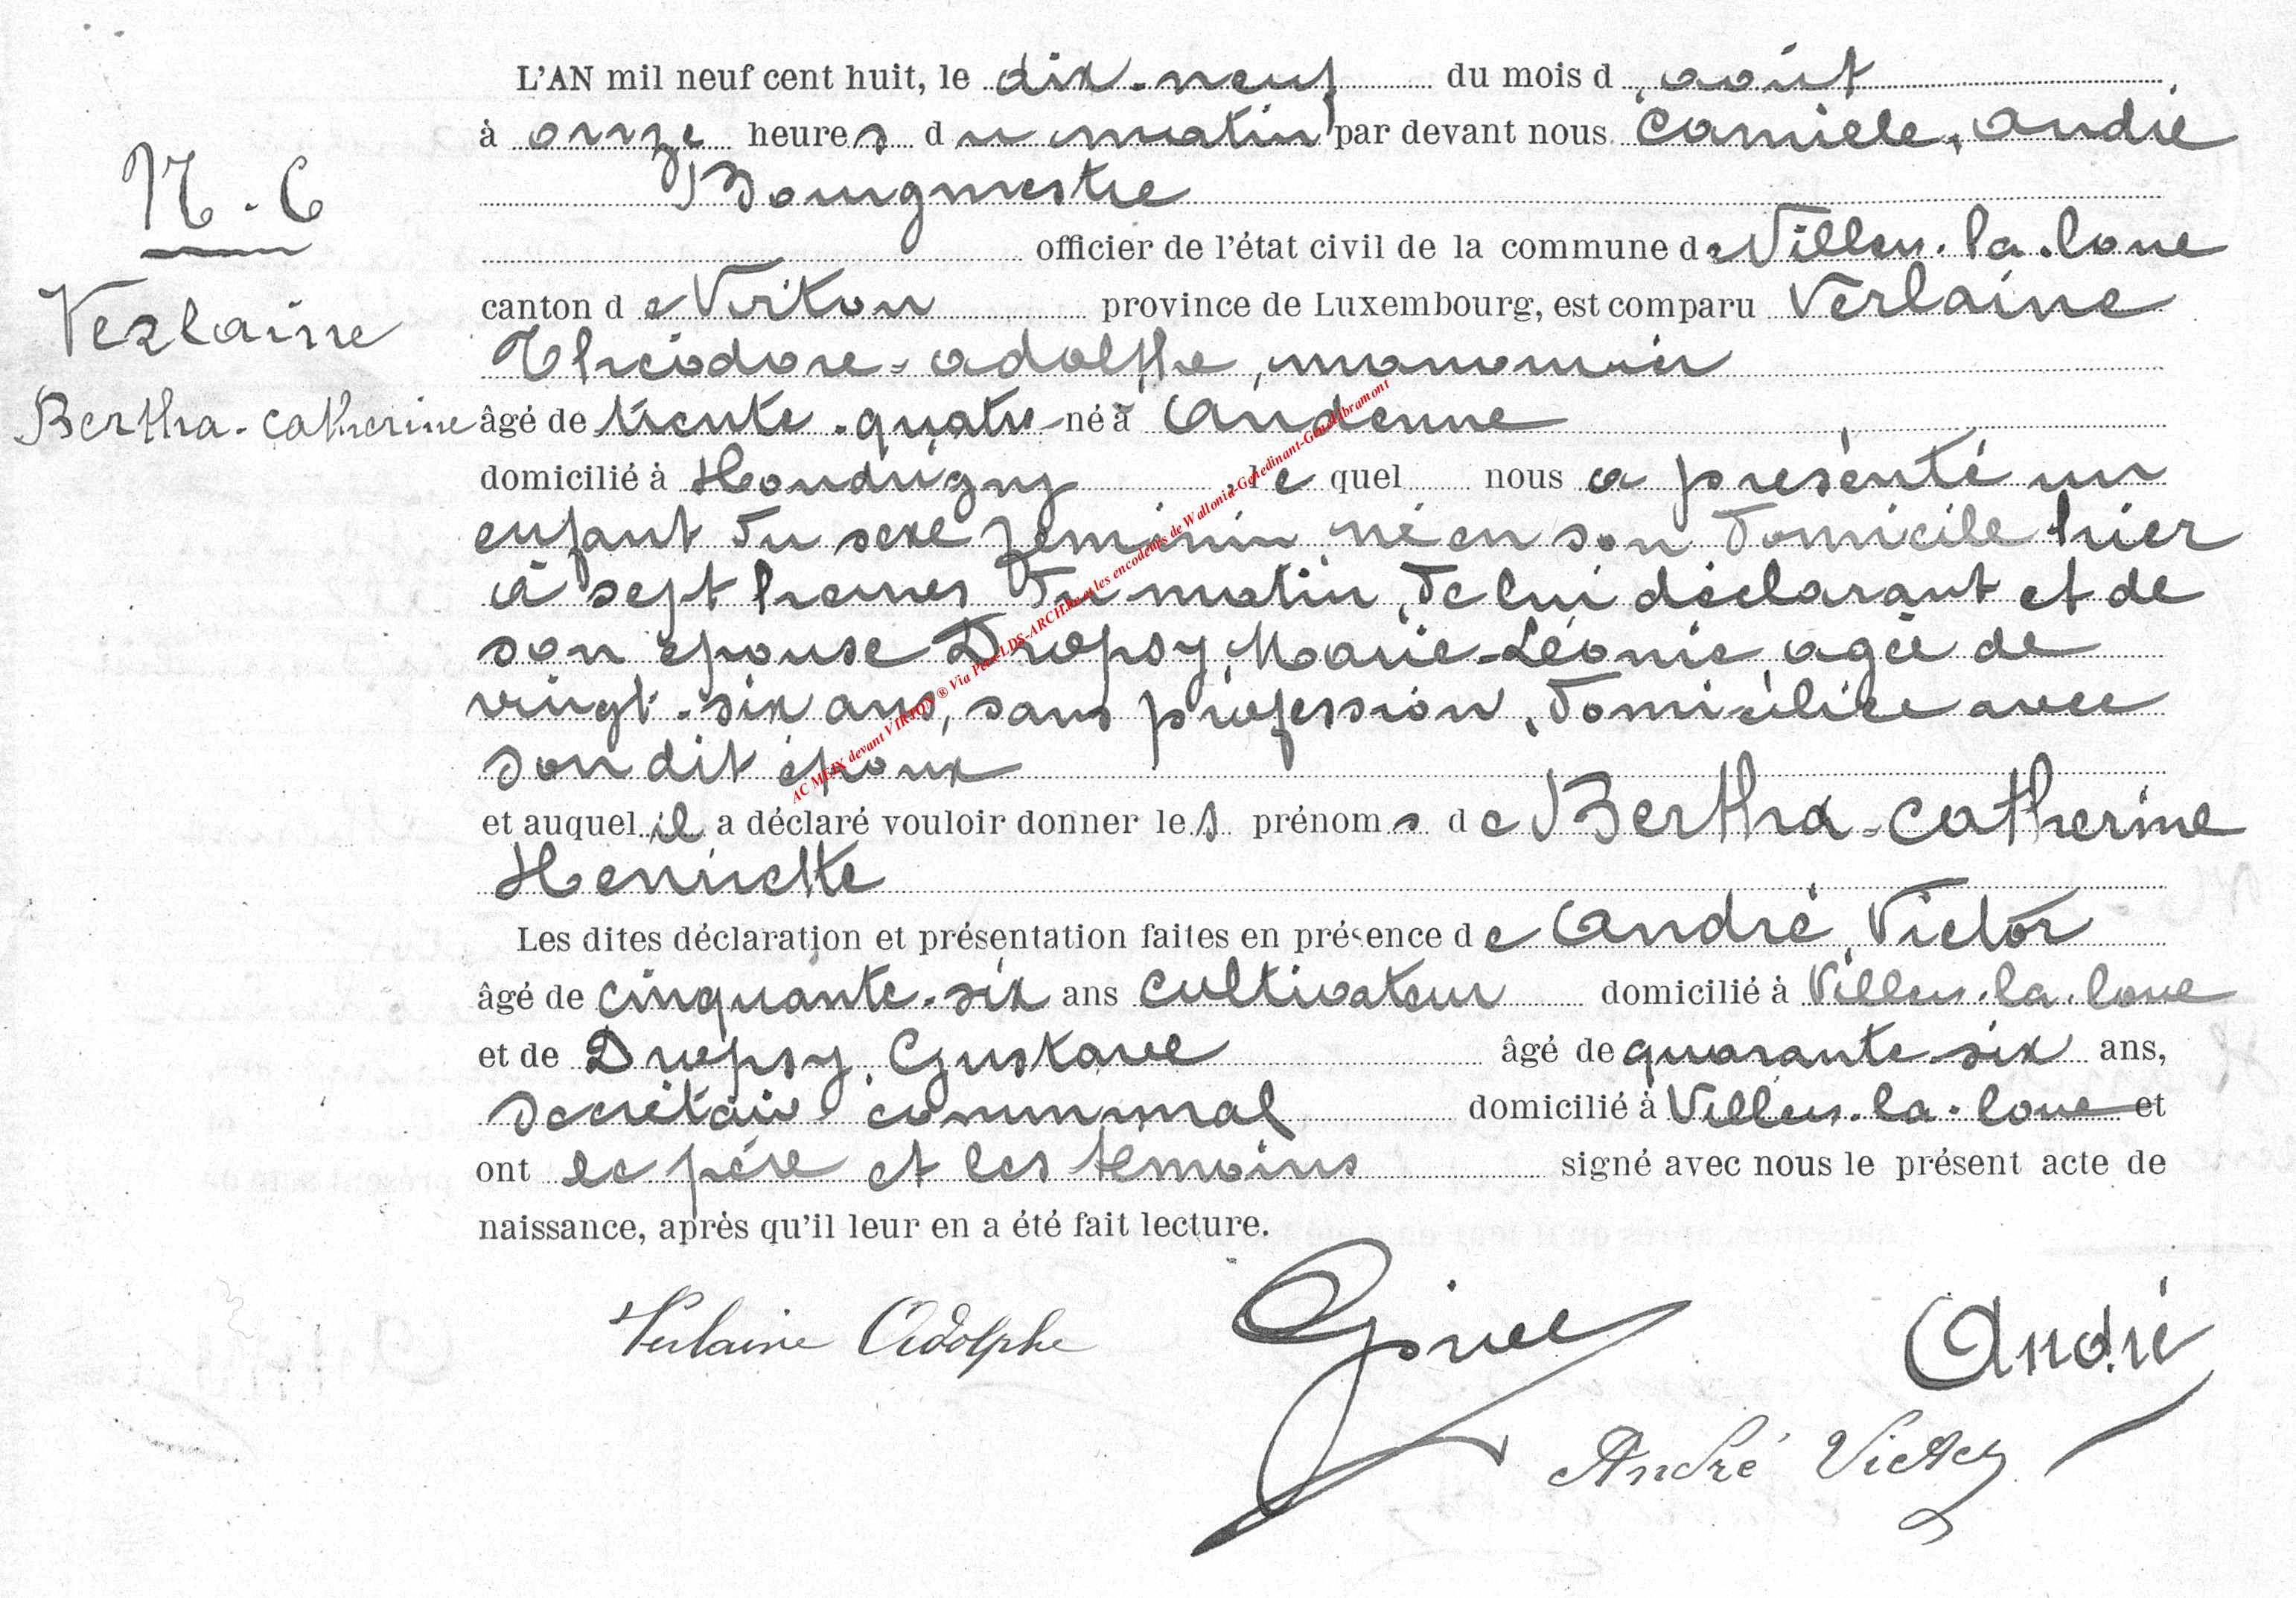 L'AN mil neuf cent huit, le dix-neuf du mois d août
à onze heures du matin par devant nous Camille, André
Bourgmestre
officier de l'état civil de la commune de Villers-la-loue
canton de Virton province de Luxembourg, est comparu Verlaine
Théodore-adolphe, manouvrier
âgé de trente-quatre né à Andenne
domicilié à Houdrigny le quel nous a présenté un
enfant du sexe féminin, né en son domicile hier
à sept heures du matin, de lui déclarant et de
son épouse Dropsy, Marie-Léonie, agée de
vingt-six ans, sans profession, domiciliée avec
son dit époux
et auquel il a déclaré vouloir donner les prénoms de Bertha-Catherine
Henriette
Les dites déclaration et présentation faites en présence de André, Victor
âgé de cinquante-six ans cultivateur domicilié à Villers-la-loue
et de Dropsy, Gustave âgé de quarante-six ans,
secrétaire communal domicilié à Villers-la-loue et
ont le père et les témoins signé avec nous le présent acte de
naissance, après qu'il leur en a été fait lecture.
N. 6
Verlaine
Bertha-Catherine
Verlaine Adolphe
André
André Victor
AC MEIX devant VIRTON ® Via Pecc LDS-ARCH et les encodeurs de Wallonie-Genedinant-GeneaLibramont